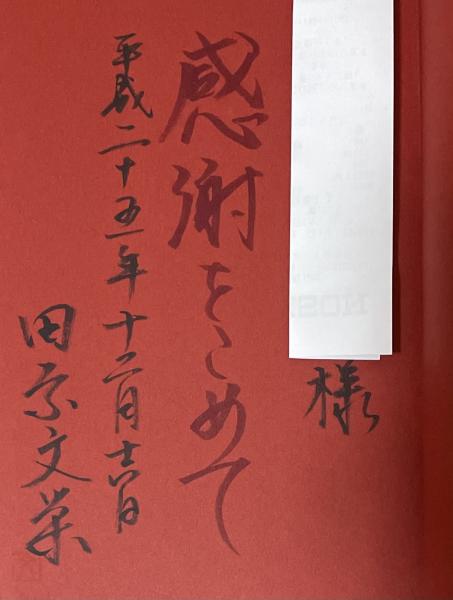 様
感謝をこめて
平成二十五年十二月十六日
田家文菓